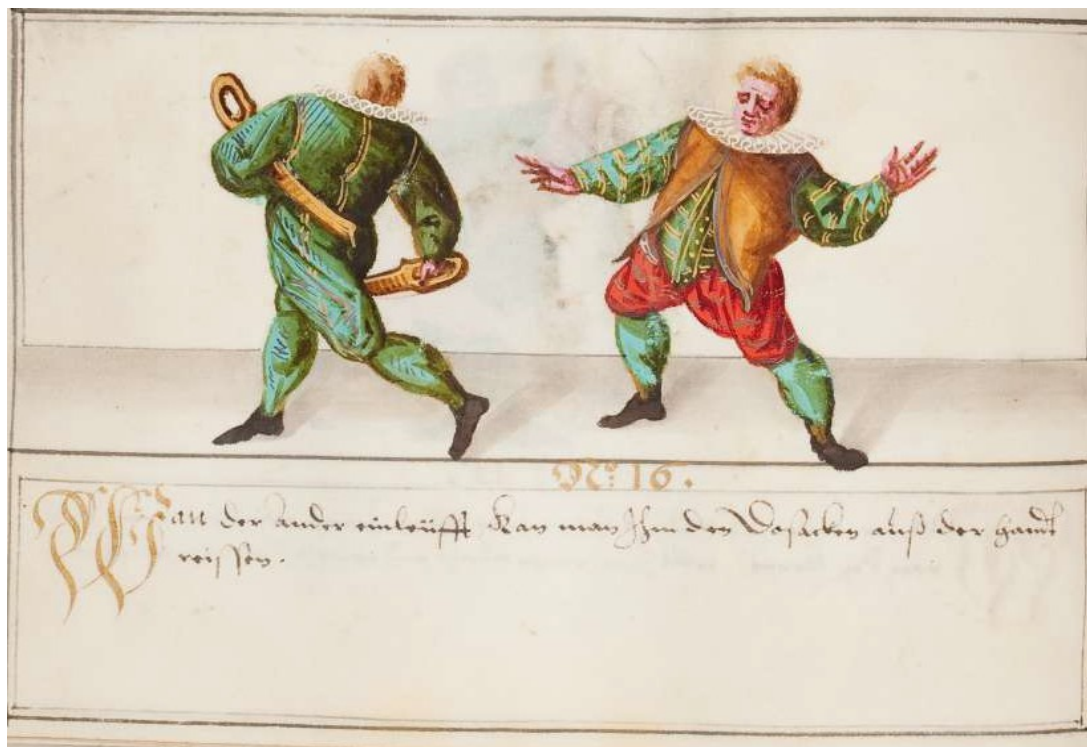 No: 16.
Wan der Ander einleüfft Kan man Ihm den Dosacken auß der handt
reissen.